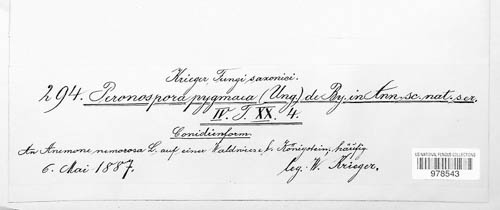 Krieger Fungi saxonici.
294. Peronospora pygmaea (Ung.) de By. in Ann. sc. nat. ser.
IV. T. XX. 4.
Conidienform.
An Anemone nemorosa L. auf einer Waldwiese b. Königstein, häufig
6. Mai 1887. leg. W. Krieger.
US NATIONAL FUNGUS COLLECTIONS
978543